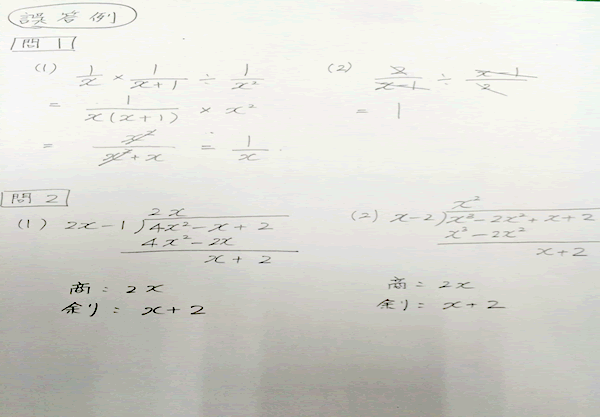 誤答例
問1
(1) 1/x × 1/(x+1) ÷ 1/x²
= 1/(x(x+1)) × x²
= x²/(x²+x) = 1/x
(2) 2/(x-1) ÷ (x-1)/2
= 1
問2
(1) 2x-1 ) 4x²-x+2
2x
4x²-2x
x+2
商: 2x
余り: x+2
(2) x-2 ) x³-2x²+x+2
x²
x³-2x²
x+2
商: 2x
余り: x+2